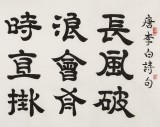 唐李白詩句
長風破
浪會有
時直掛